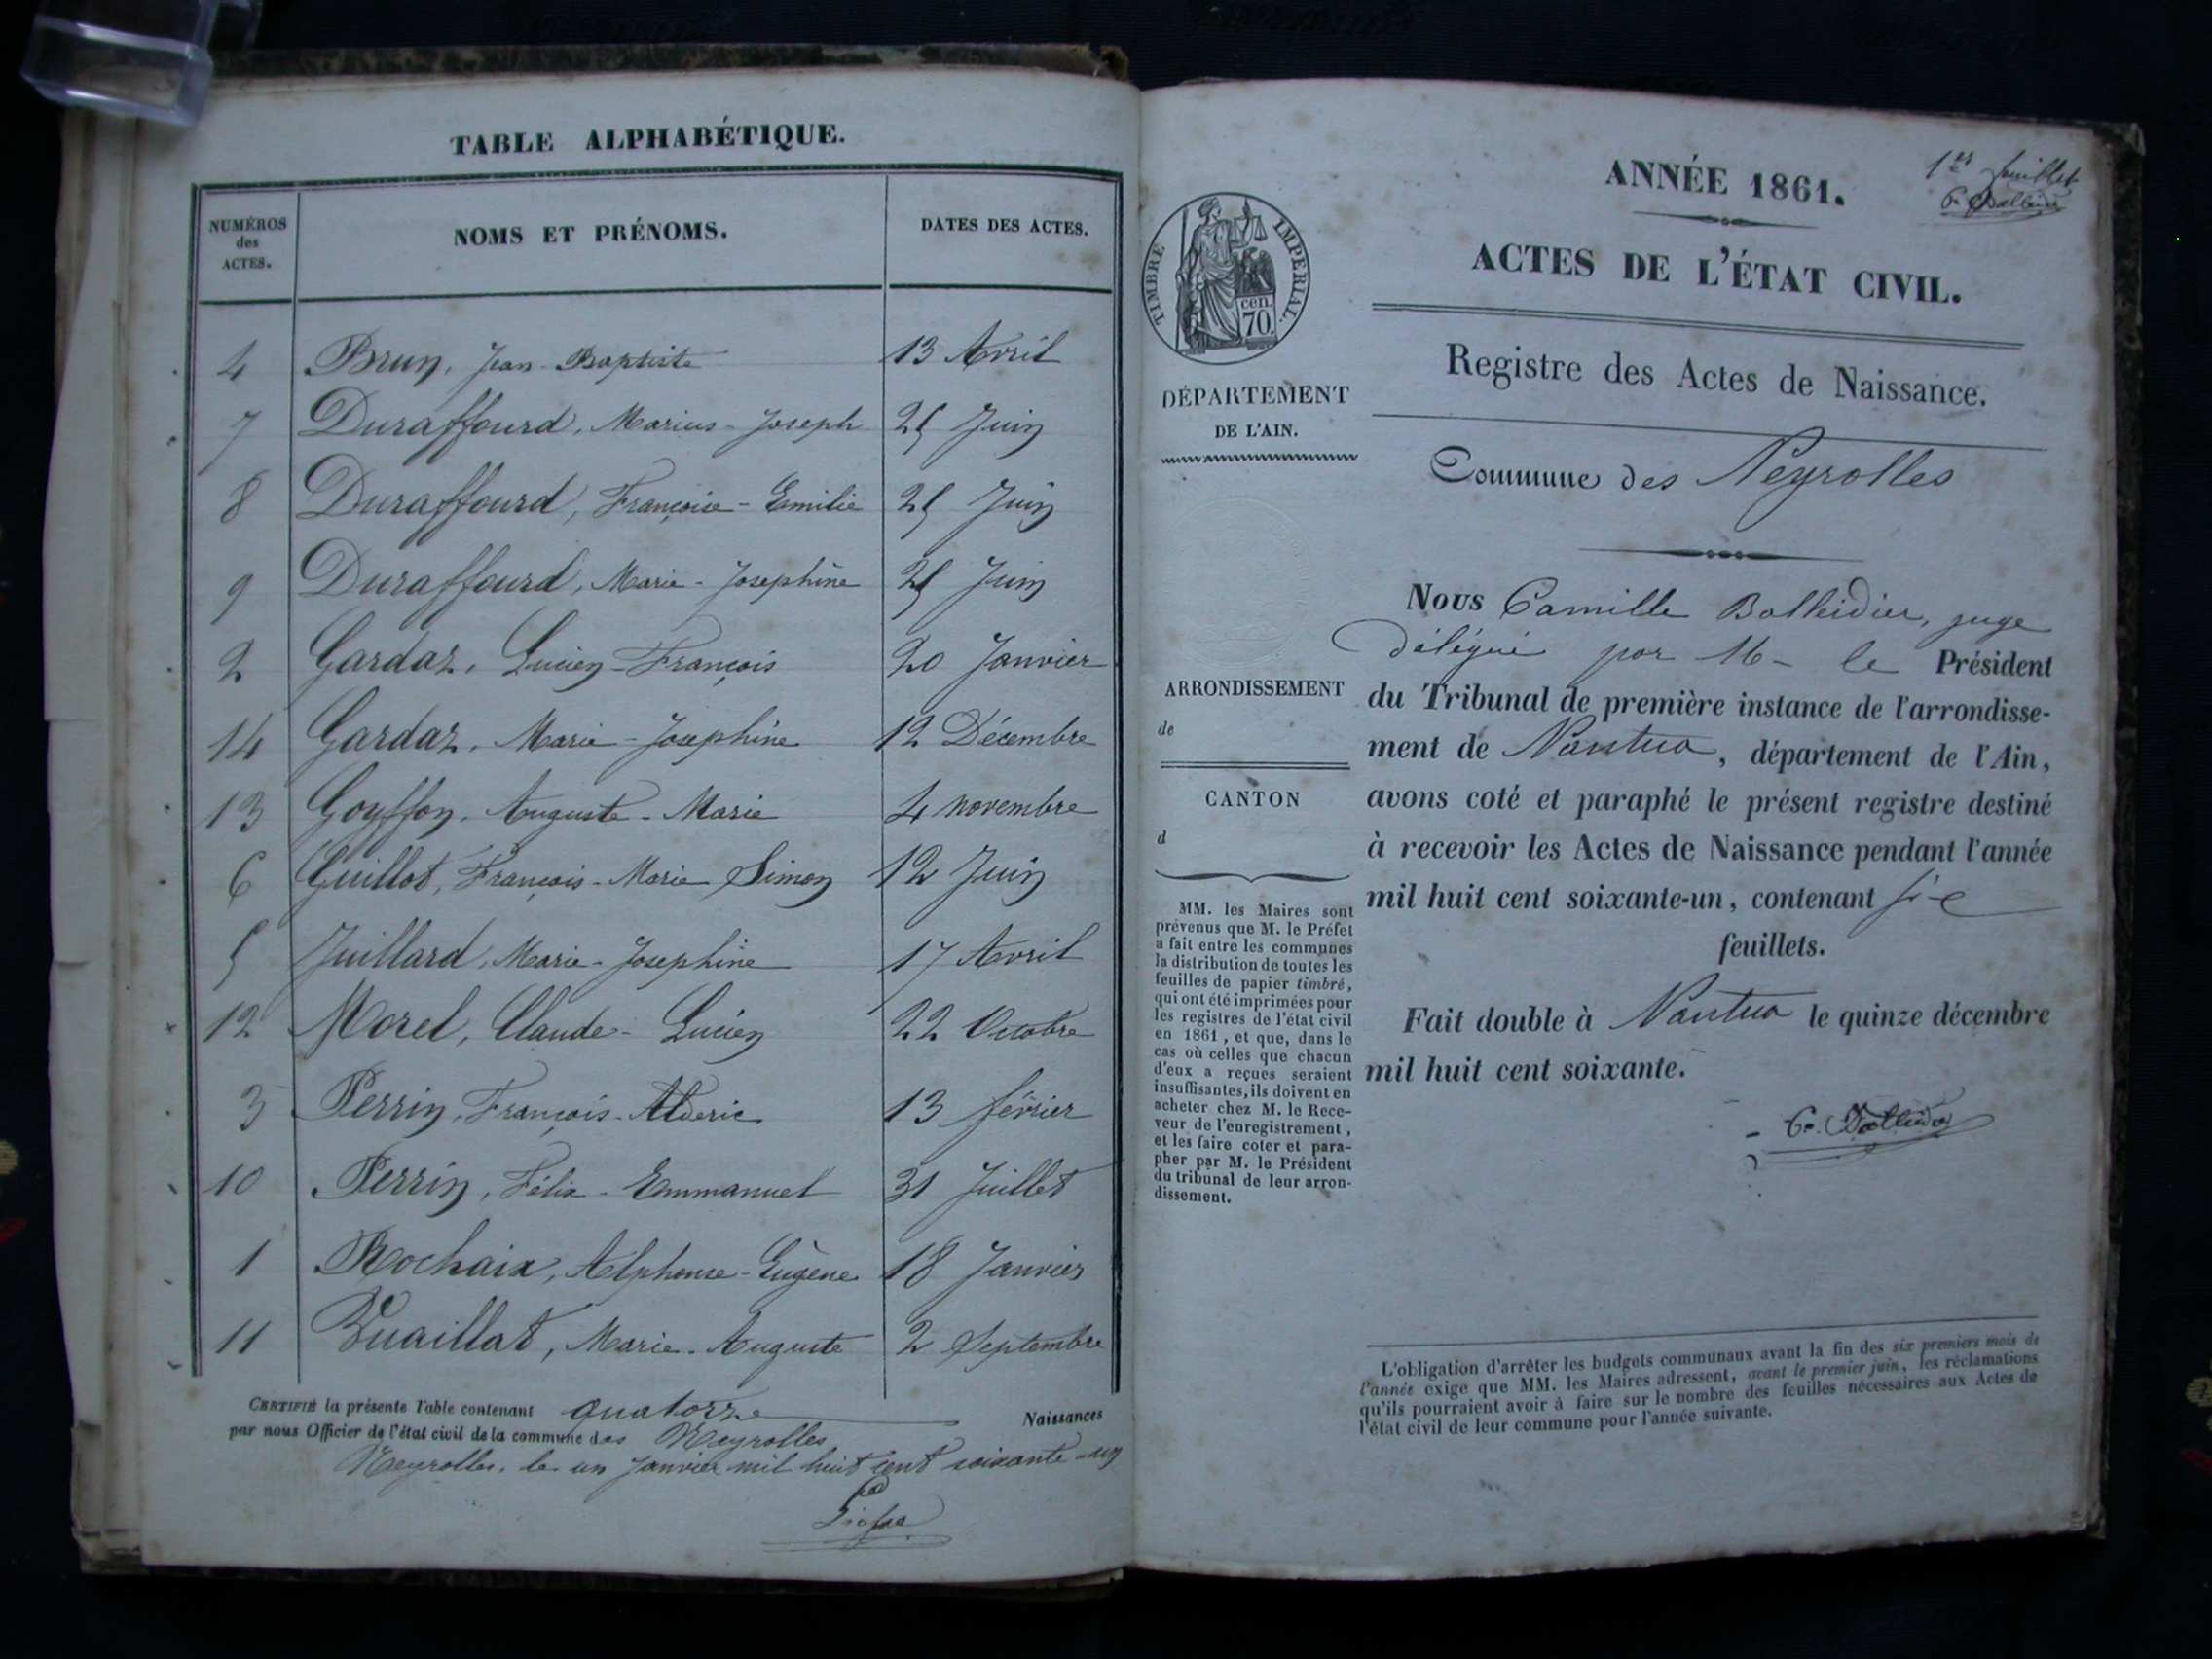 TABLE ALPHABÉTIQUE.
NUMÉROS des ACTES. NOMS ET PRÉNOMS. DATES DES ACTES.
4 Brun, Jean-Baptiste 13 Avril
7 Duraffourd, Marius-Joseph 25 Juin
8 Duraffourd, Françoise-Emilie 25 Juin
9 Duraffourd, Marie-Josephine 25 Juin
2 Gardaz, Lucien-François 20 Janvier
14 Gardaz, Marie-Josephine 12 Décembre
13 Gouffon, Auguste-Marie 4 novembre
6 Guillot, François-Marie Simon 12 Juin
5 Juillard, Marie-Josephine 17 Avril
12 Morel, Claude-Lucien 22 Octobre
3 Perrin, François-Alderic 13 février
10 Perrin, Félix-Emmanuel 31 Juillet
1 Rochaix, Alphonse-Eugène 18 Janvier
11 Vuaillat, Marie-Auguste 2 Septembre
CERTIFIÉ la présente Table contenant quatorze Naissances
par nous Officier de l'état civil de la commune des Neyrolles
Neyrolles, le un Janvier mil huit cent soixante-un
1er feuillet
TIMBRE IMPÉRIAL.
70 cen.
DÉPARTEMENT
DE L'AIN.
ARRONDISSEMENT
de
CANTON
d
MM. les Maires sont
prévenus que M. le Préfet
a fait entre les communes
la distribution de toutes les
feuilles de papier timbré,
qui ont été imprimées pour
les registres de l'état civil
en 1861, et que, dans le
cas où celles que chacun
d'eux a reçues seraient
insuffisantes, ils doivent en
acheter chez M. le Rece-
veur de l'enregistrement,
et les faire coter et para-
pher par M. le Président
du tribunal de leur arron-
dissement.
ANNÉE 1861.
ACTES DE L'ÉTAT CIVIL.
Registre des Actes de Naissance.
Commune des Neyrolles
Nous Camille Bolleidier, juge
délégué par M. le Président
du Tribunal de première instance de l'arrondisse-
ment de Nantua, département de l'Ain,
avons coté et paraphé le présent registre destiné
à recevoir les Actes de Naissance pendant l'année
mil huit cent soixante-un, contenant
feuillets.
Fait double à Nantua le quinze décembre
mil huit cent soixante.
L'obligation d'arrêter les budgets communaux avant la fin des six premiers mois de
l'année exige que MM. les Maires adressent, avant le premier juin, les réclamations
qu'ils pourraient avoir à faire sur le nombre des feuilles nécessaires aux Actes de
l'état civil de leur commune pour l'année suivante.